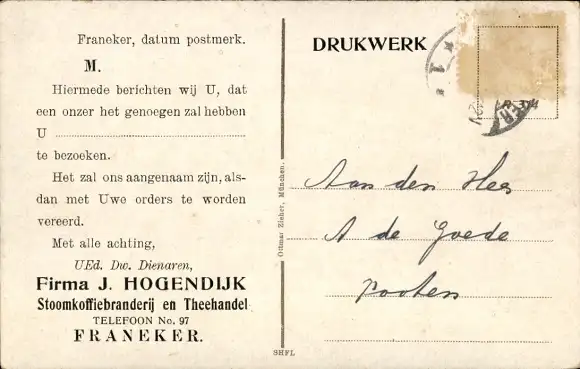 Franeker, datum postmerk.
M.
Hiermede berichten wij U, dat
een onzer het genoegen zal hebben
U
te bezoeken.
Het zal ons aangenaam zijn, als-
dan met Uwe orders te worden
vereerd.
Met alle achting,
UEd. Dw. Dienaren,
Firma J. HOGENDIJK
Stoomkoffiebranderij en Theehandel
TELEFOON No. 97
FRANEKER.
Ottmar Zieher, München.
SHFL
DRUKWERK
Aan den Heer
A de Goede